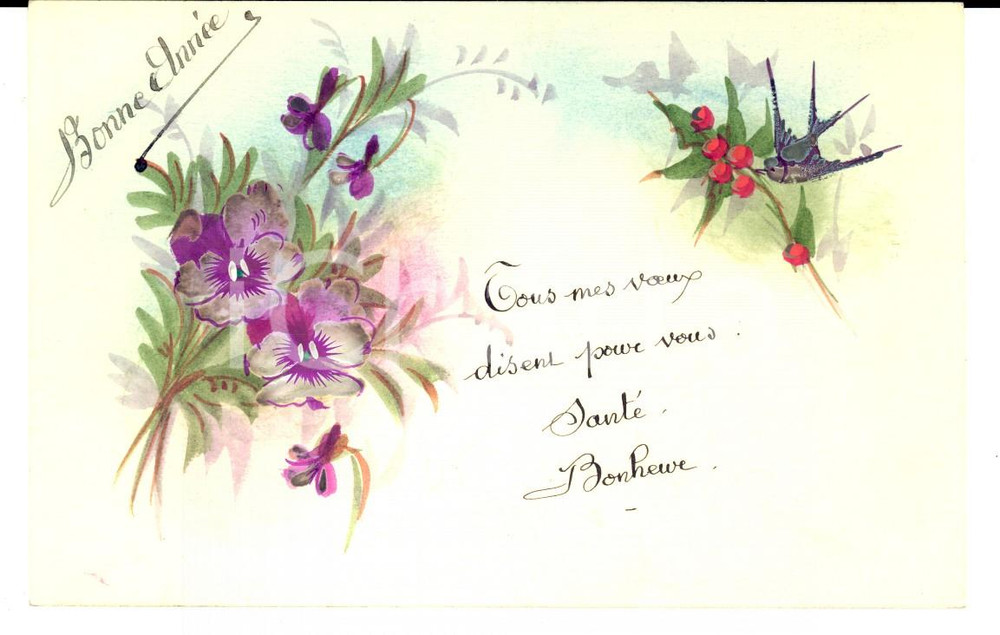 Bonne Année
Tous mes vœux
disent pour vous :
Santé.
Bonheur.